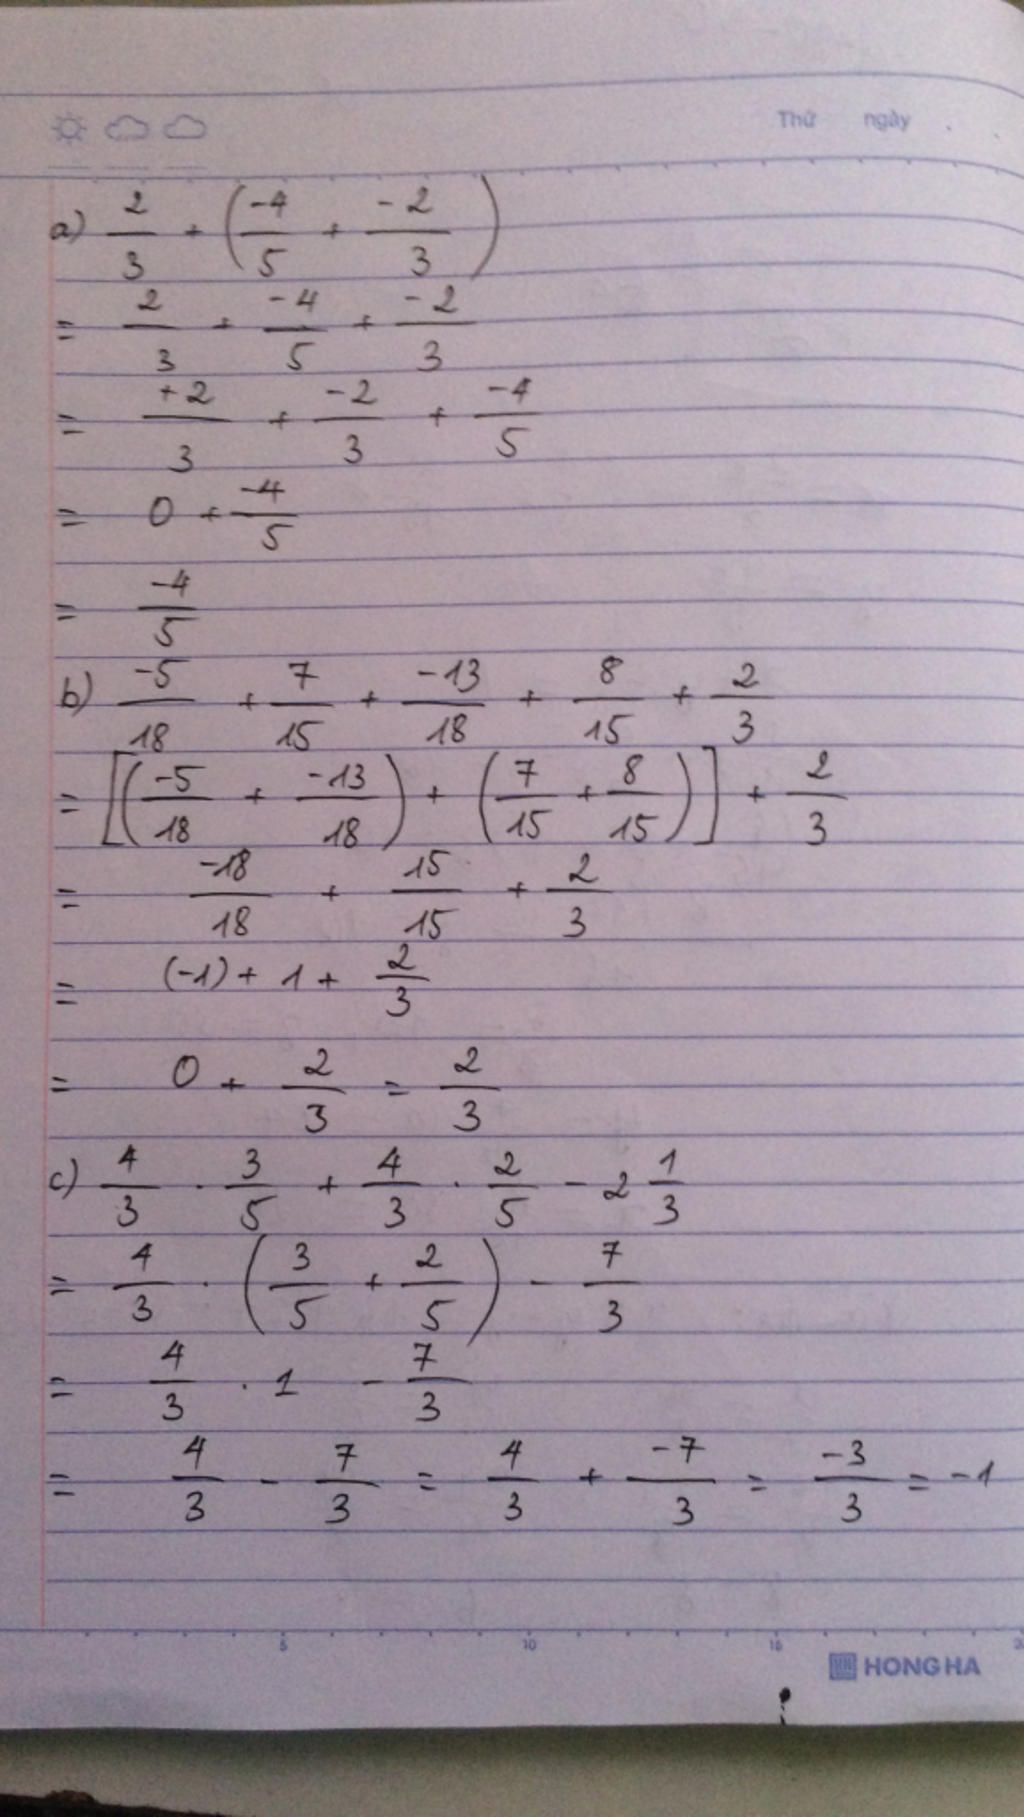 Thứ ngày
a) 2/3 + (-4/5 + -2/3)
= 2/3 + -4/5 + -2/3
= +2/3 + -2/3 + -4/5
= 0 + -4/5
= -4/5
b) -5/18 + 7/15 + -13/18 + 8/15 + 2/3
= [(-5/18 + -13/18) + (7/15 + 8/15)] + 2/3
= -18/18 + 15/15 + 2/3
= (-1) + 1 + 2/3
= 0 + 2/3 = 2/3
c) 4/3 . 3/5 + 4/3 . 2/5 - 2 1/3
= 4/3 . (3/5 + 2/5) - 7/3
= 4/3 . 1 - 7/3
= 4/3 - 7/3 = 4/3 + -7/3 = -3/3 = -1
5 10 15
HONG HA